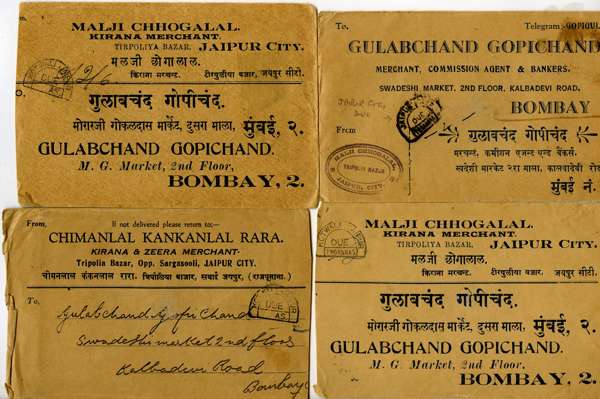 MALJI CHHOGALAL.
KIRANA MERCHANT.
TIRPOLIYA BAZAR, JAIPUR CITY.
मलजी छोगालाल.
किराना मरचन्ट. टीरपुलीया बजार, जयपुर सीटी.
DUE
गुलाबचंद गोपीचंद.
मोरारजी गोकलदास मार्केट, दुसरा माला, मुंबई, २.
GULABCHAND GOPICHAND.
M. G. Market, 2nd Floor,
BOMBAY, 2.
To, Telegram:
GULABCHAND GOPICHAND
MERCHANT, COMMISSION AGENT & BANKERS.
SWADESHI MARKET, 2ND FLOOR, KALBADEVI ROAD,
BOMBAY
DUE
From गुलाबचंद गोपीचंद
मरचन्ट, कमीशन एजन्ट एन्ड बेंकर्स.
स्वदेशी मारकेट २रा माला, कालबादेवी
मुंबई नं.
MALJI CHHOGALAL.
TRIPOLIA BAZAR
JAIPUR, CITY.
From, If not delivered please return to:-
CHIMANLAL KANKANLAL RARA.
KIRANA & ZEERA MERCHANT.
Tripolia Bazar, Opp. Sargasooli, JAIPUR CITY.
चीमनलाल कंकनलाल रारा. त्रिपोलिया बाजार, सवाई जयपुर, (राजपूताना.)
DUE
To,
Gulabchand Gopi Chand
Swadeshi market 2nd floor
Kalbadevi Road
Bombay
MALJI CHHOGALAL.
KIRANA MERCHANT.
TIRPOLIYA BAZAR, JAIPUR CITY.
मलजी छोगालाल.
किराना मरचन्ट. टीरपुलीया बजार, जयपुर सीटी.
DUE
गुलाबचंद गोपीचंद.
मोरारजी गोकलदास मार्केट, दुसरा माला, मुंबई, २.
GULABCHAND GOPICHAND.
M. G. Market, 2nd Floor,
BOMBAY, 2.